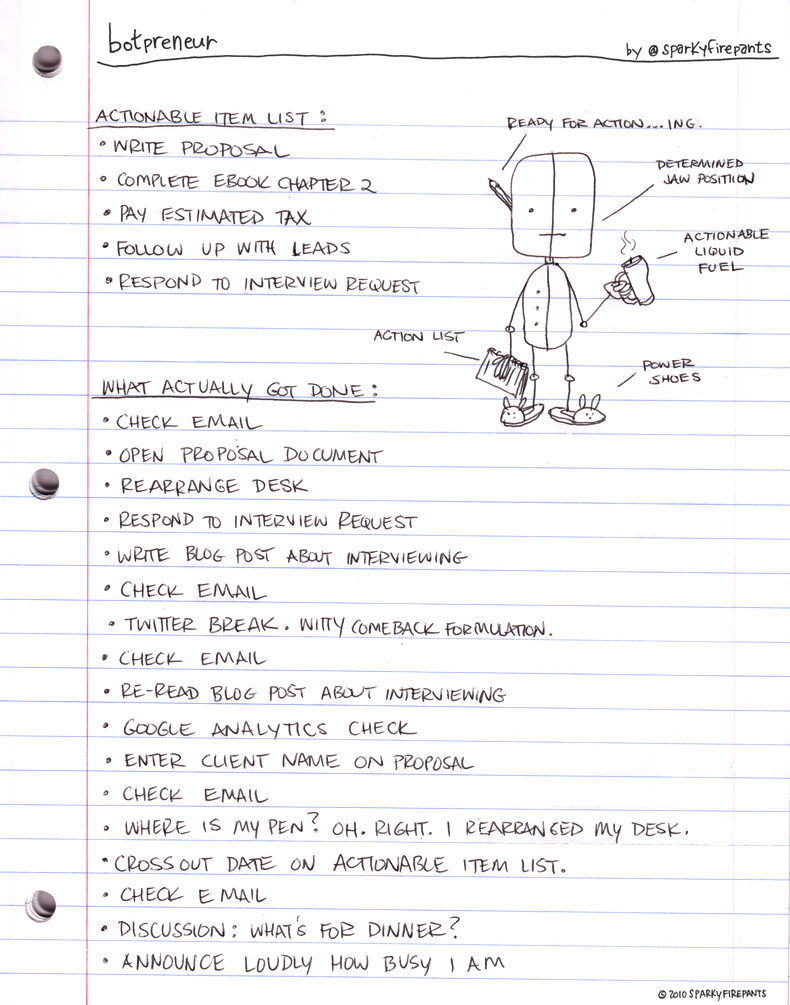 botpreneur
by @sparkyfirepants
ACTIONABLE ITEM LIST:
• WRITE PROPOSAL
• COMPLETE EBOOK CHAPTER 2
• PAY ESTIMATED TAX
• FOLLOW UP WITH LEADS
• RESPOND TO INTERVIEW REQUEST
READY FOR ACTION...ING.
DETERMINED
JAW POSITION
ACTIONABLE
LIQUID
FUEL
ACTION LIST
POWER
SHOES
WHAT ACTUALLY GOT DONE:
• CHECK EMAIL
• OPEN PROPOSAL DOCUMENT
• REARRANGE DESK
• RESPOND TO INTERVIEW REQUEST
• WRITE BLOG POST ABOUT INTERVIEWING
• CHECK EMAIL
• TWITTER BREAK. WITTY COMEBACK FORMULATION.
• CHECK EMAIL
• RE-READ BLOG POST ABOUT INTERVIEWING
• GOOGLE ANALYTICS CHECK
• ENTER CLIENT NAME ON PROPOSAL
• CHECK EMAIL
• WHERE IS MY PEN? OH. RIGHT. I REARRANGED MY DESK.
• CROSS OUT DATE ON ACTIONABLE ITEM LIST.
• CHECK EMAIL
• DISCUSSION: WHAT'S FOR DINNER?
• ANNOUNCE LOUDLY HOW BUSY I AM
© 2010 SPARKYFIREPANTS